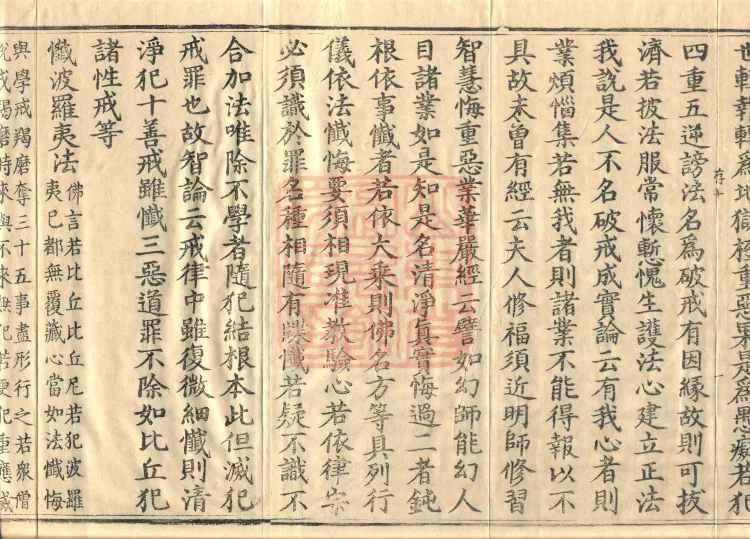 世轉報轉為地獄極重惡果是為愚癡若犯
四重五逆謗法名為破戒有因緣故則可拔
濟若披法服常懷慙愧生護法心建立正法
我說是人不名破戒成實論云有我心者則
業煩惱集若無我者則諸業不能得報以不
具故未曾有經云夫人修福須近明師修習
智慧悔重惡業華嚴經云譬如幻師能幻人
目諸業如是知是名清淨真實悔過二者鈍
根依事懺者若依大乘則佛名方等具列行
儀依法懺悔要須相現准教驗心若依律宗
必須識於罪名種相隨有牒懺若疑不識不
合加法唯除不學者隨犯結根本此但滅犯
戒罪也故智論云戒律中雖復微細懺則清
淨犯十善戒雖懺三惡道罪不除如比丘犯
諸性戒等
懺波羅夷法
佛言若比丘比丘尼若犯波羅
夷已都無覆藏心當如法懺悔
與學戒羯磨奪三十五事盡形行之若眾僧
說戒羯磨時來與不來無犯若更犯重應滅